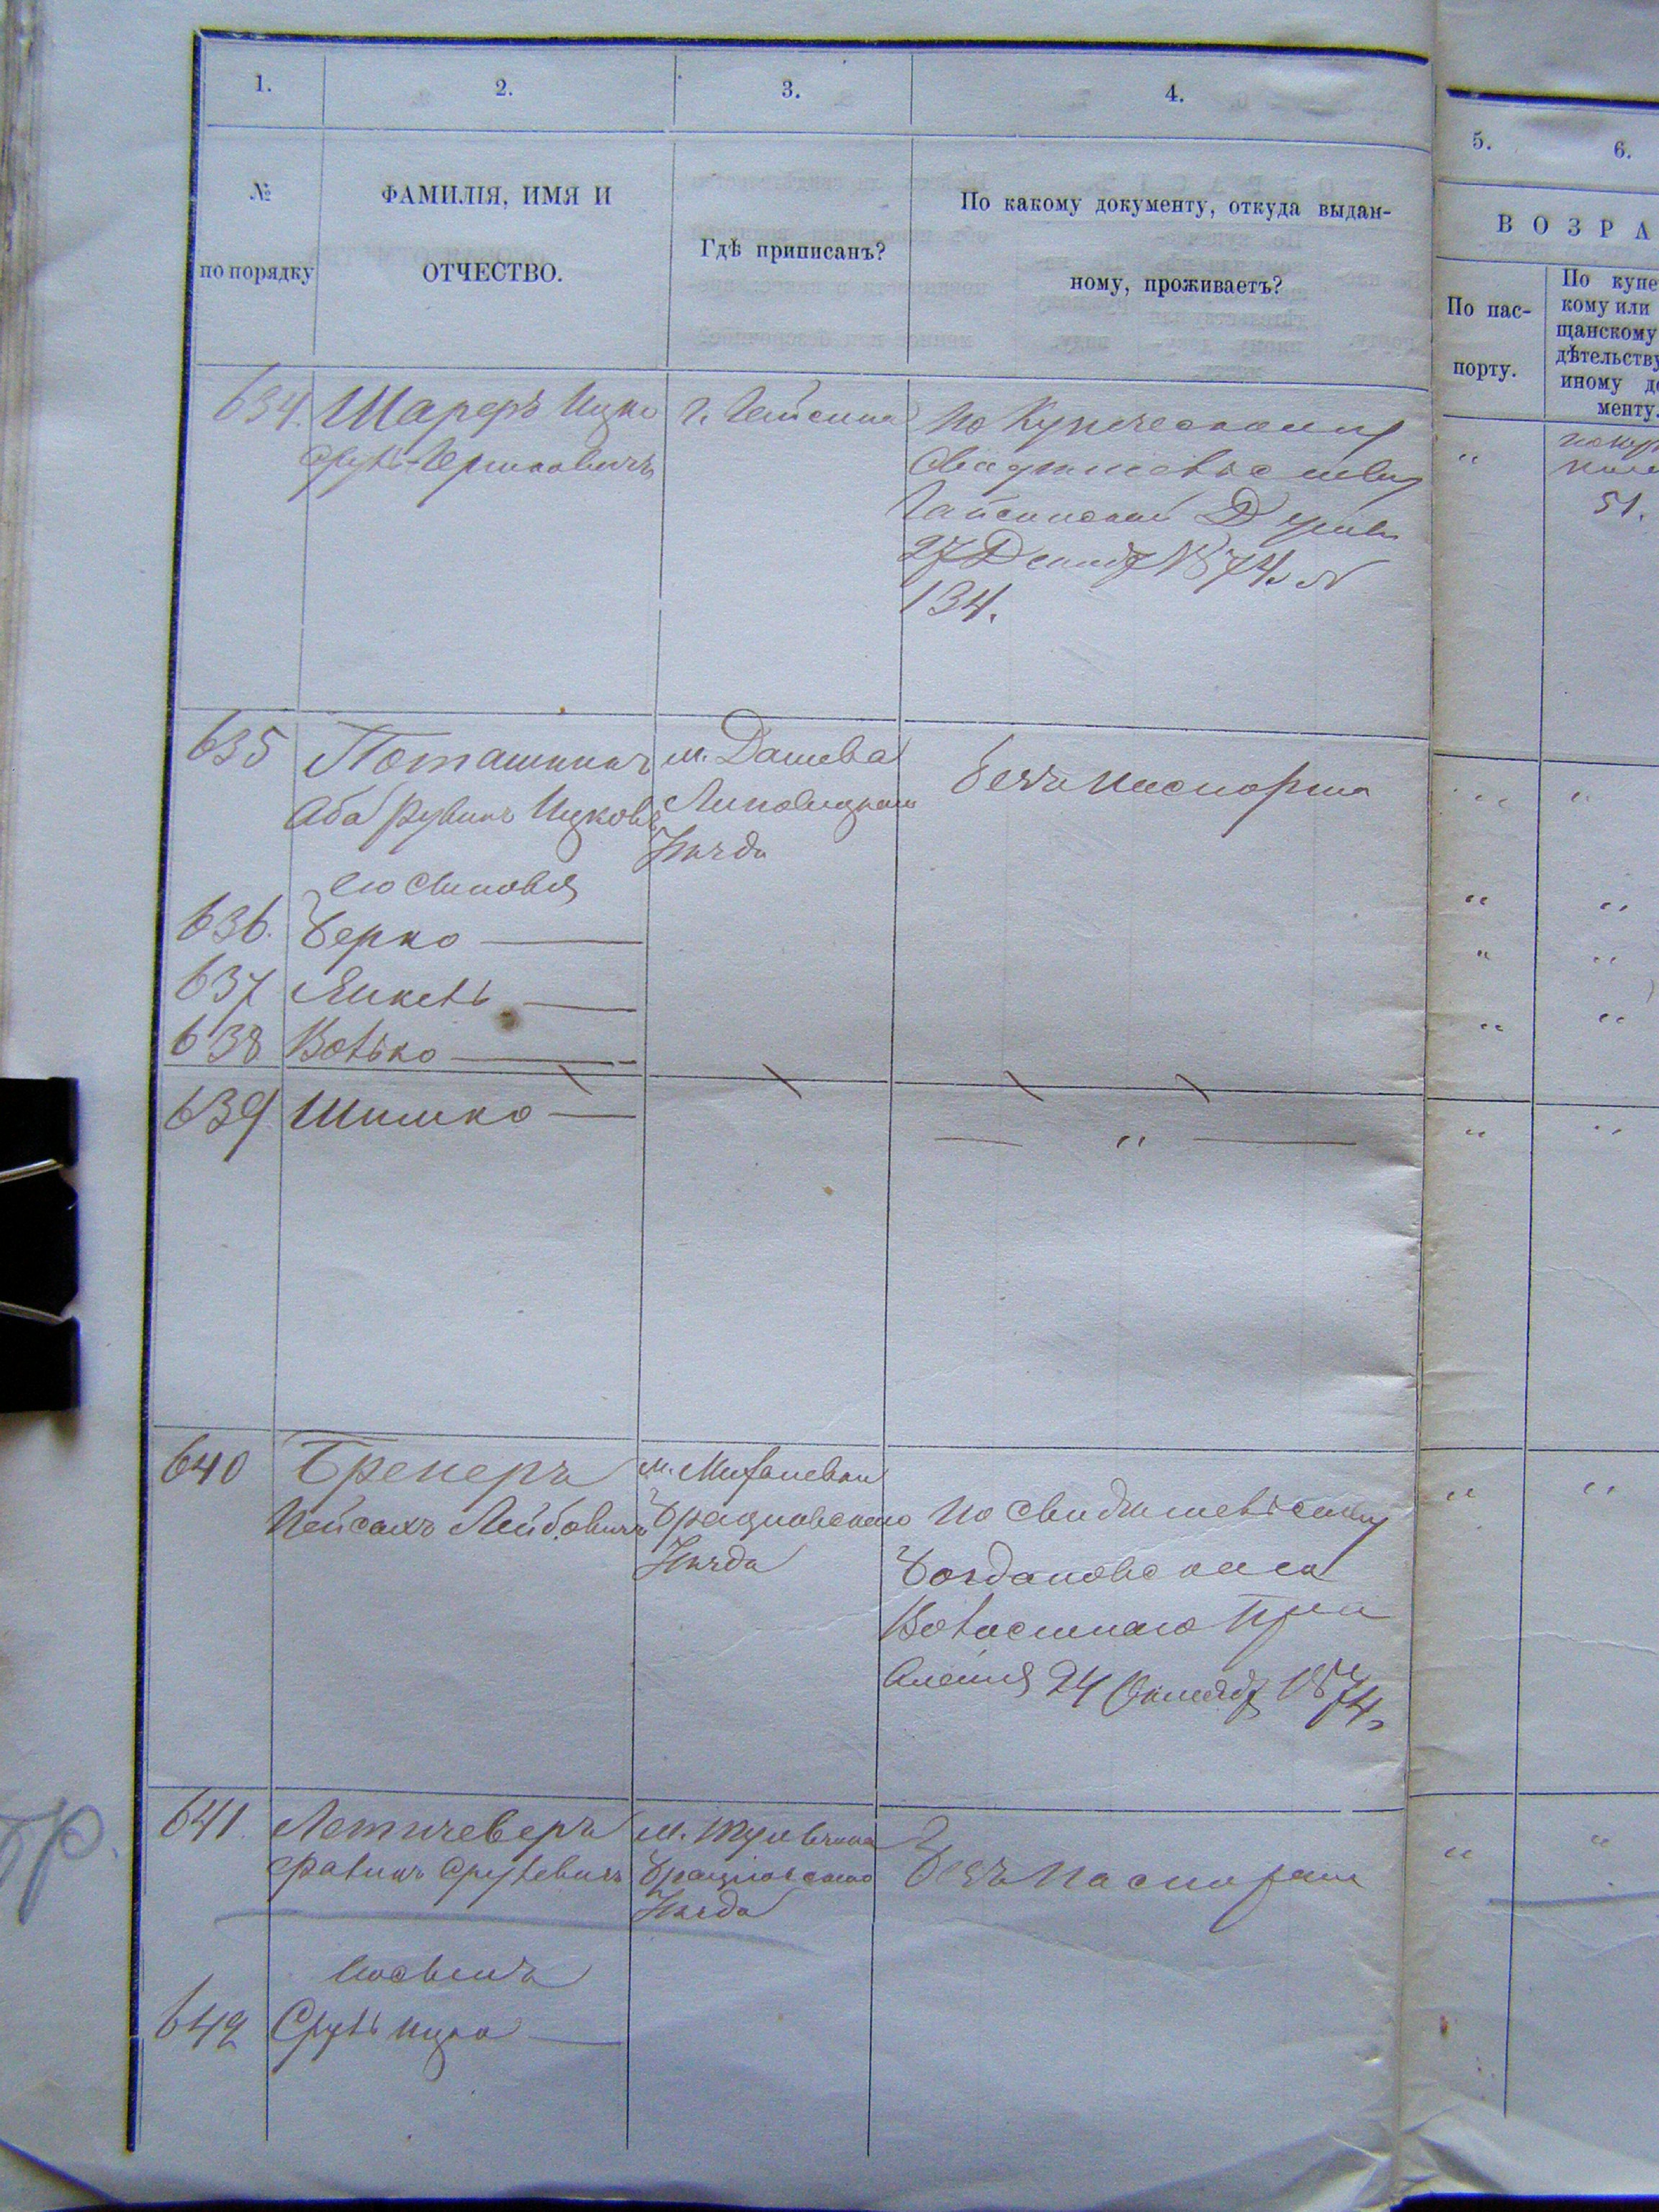 1.
2.
3.
4.
5.
6.
№
по порядку
ФАМИЛІЯ, ИМЯ И
ОТЧЕСТВО.
Гдѣ приписанъ?
По какому документу, откуда выдан-
ному, проживаетъ?
ВОЗРА
По пас-
порту.
По купе
кому или
щанскому
дѣтельству
иному до
менту.
634. Шареръ Ицко
Сруль-Гершковичъ
г. Гайсина
По Купеческому
Свидѣтельству
Гайсинской Думы
27 Декабр 1874 г №
134.
"
51.
635 Поташникъ
Аба Рувинъ Ицковъ
м. Дашева
Липовецкаго
Уѣзда
безъ паспорта
его сыновья
636. Берко —
637 Янкель —
638 Волько —
639 Шимко —
— " —
640 Бренеръ
Пейсахъ Лейбовичъ
м.
Брацлавскаго
Уѣзда
По свидѣтельству
Богдановскаго
Волостнаго Пра
вленія 24 Октябр 1874 г
641. Летичеверъ
Срулевичъ
м. Тульчина
Брацлавскаго
Уѣзда
Безъ паспорта
его сынъ
642 Сруль Ицко —